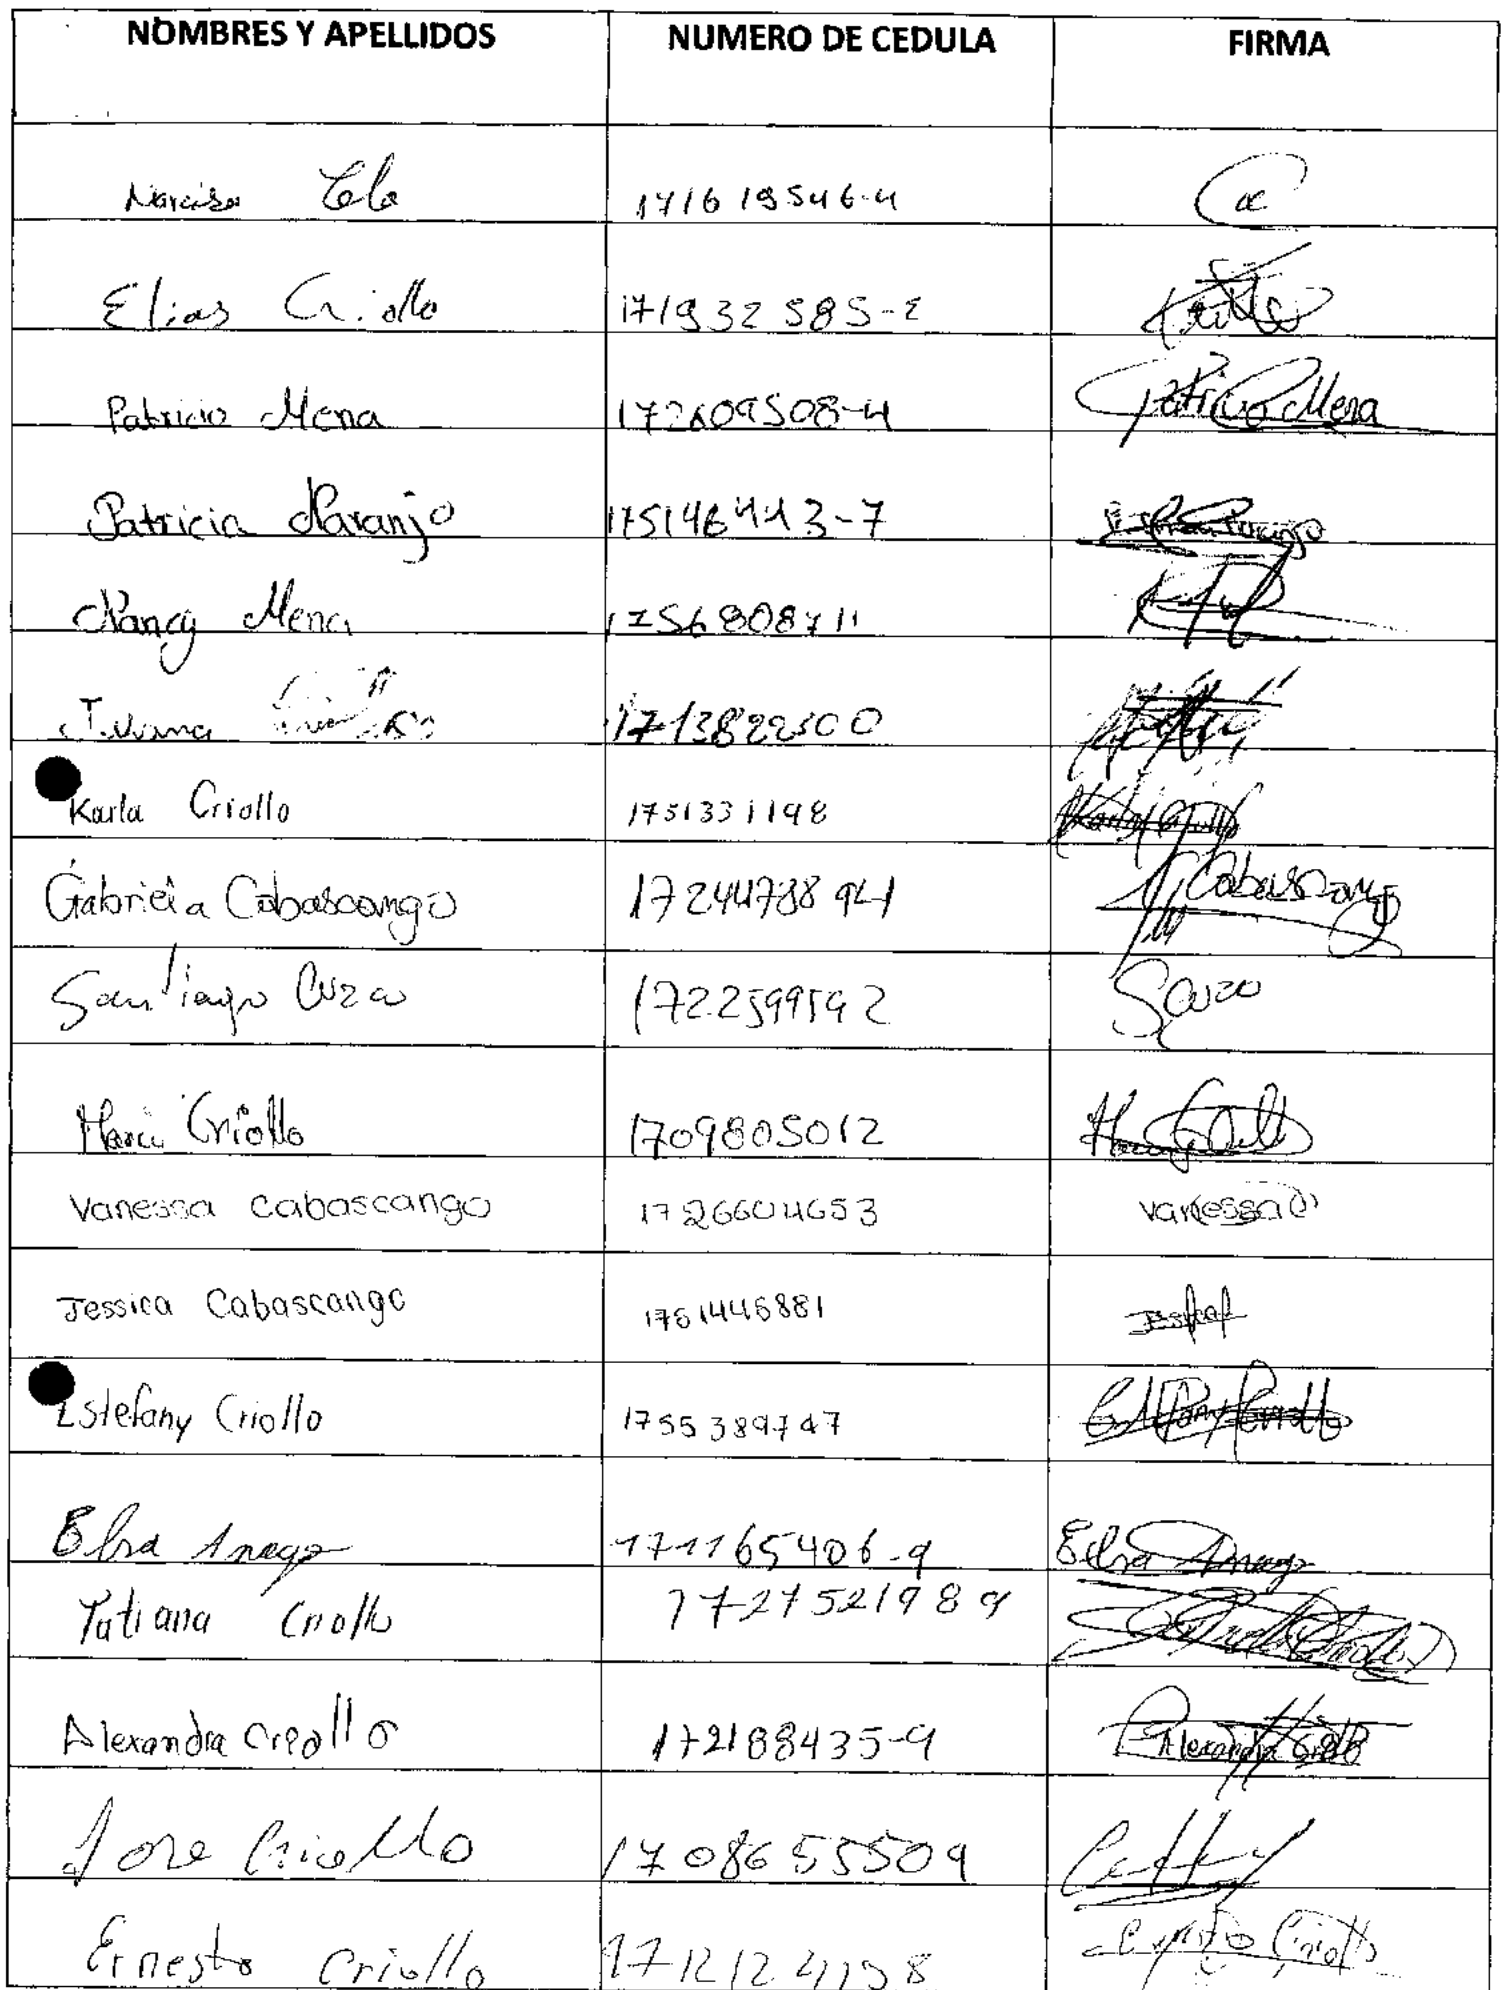 NOMBRES Y APELLIDOS NUMERO DE CEDULA FIRMA
Narcisa 171619546-4
Elias Criollo 171932585-2
Patricio Mena 172609508-4 Patricio Mena
Patricia Naranjo 175146443-7
Nancy Mena 1756808711
1713822300
Karla Criollo 1751331198 Karla Criollo
Gabriela Cabascango 1724478894-1 Cabascango
Santiago Cuzco 1722599592 SCuzco
Maria Criollo 1709805012
Vanessa Cabascango 1726604653 Vanessa C
Jessica Cabascango 1751445881
Estefany Criollo 1755389747 Estefany Criollo
Elsa Anago 171165406-9 Elsa Anago
Tatiana Criollo 1727521989
Alexandra Criollo 172188435-9 Alexandra Criollo
Jose Criollo 1708655509
Ernesto Criollo 1712124198 Ernesto Criollo